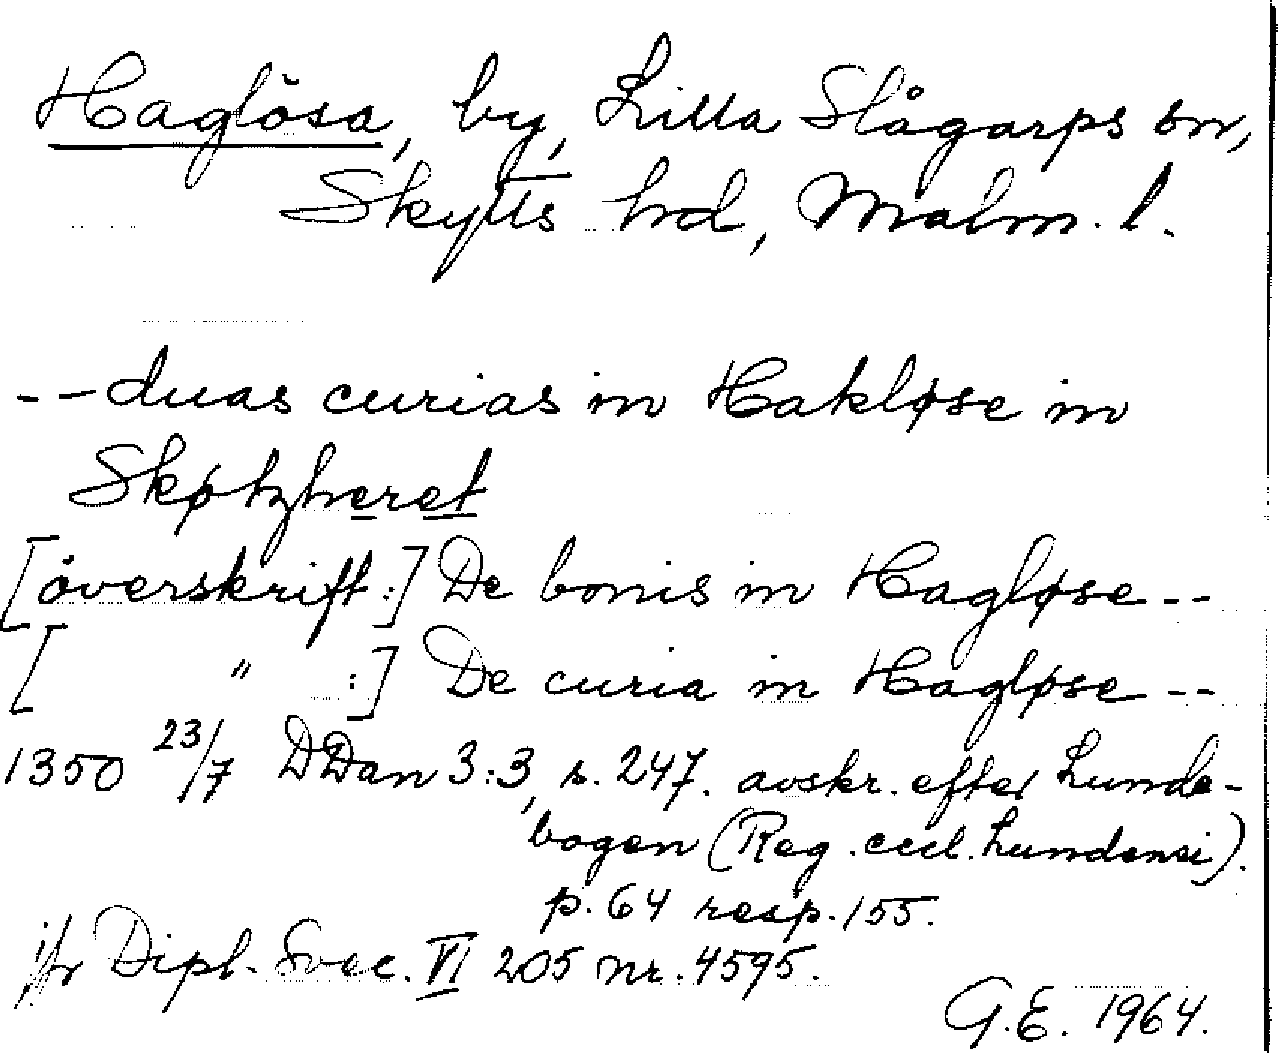 Haglösa, by, Lilla Slågarps sn,
Skytts hd, Malm. l.
-- duas curias in Hakløse in
Skøtzheret
[överskrift:] De bonis in Hagløse --
[ " :] De curia in Hagløse --
1350 23/7 DDan 3:3, s. 247. avskr. efter Lunde-
bogen (Reg. eccl. Lundensi).
p. 64 resp. 155.
jfr Dipl. Svec. VI 205 nr. 4595.
G.E. 1964.